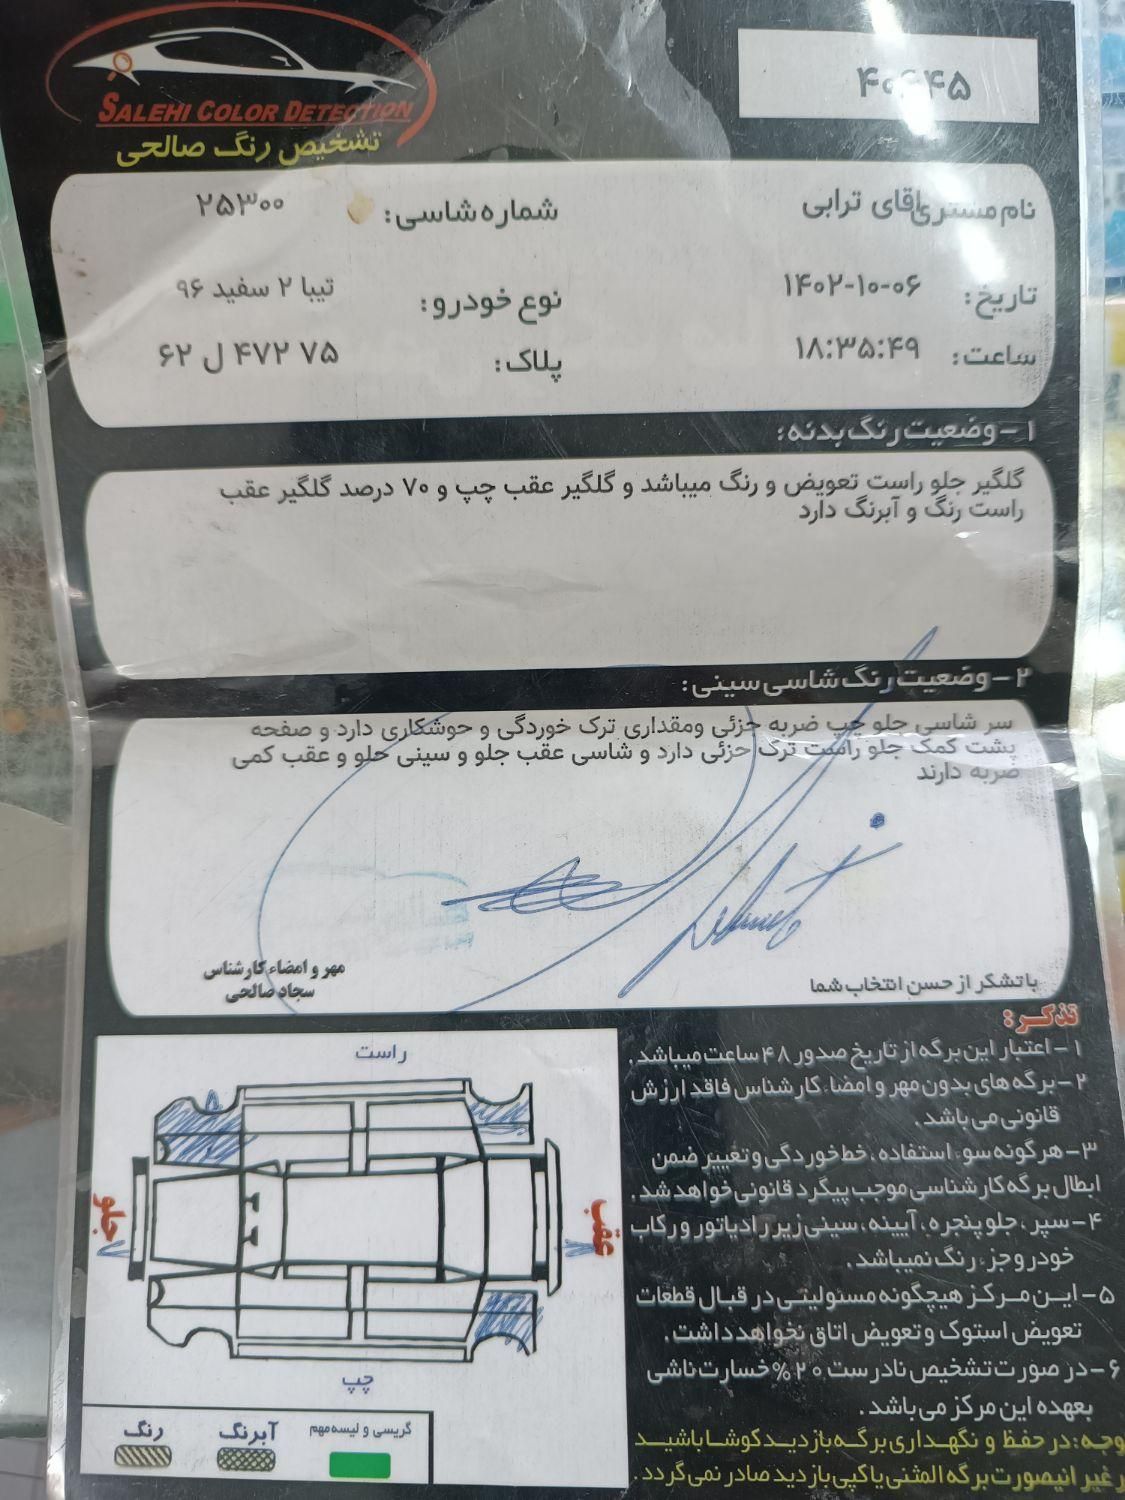 SALEHI COLOR DETECTION
تشخیص رنگ صالحی
۴۰۶۴۵
نام مشتری: اقای ترابی
شماره شاسی: ۲۵۳۰۰
تاریخ: ۱۴۰۲-۱۰-۰۶
نوع خودرو: تیبا ۲ سفید ۹۶
ساعت: ۱۸:۳۵:۴۹
پلاک: ۷۵ ۴۷۲ ل ۶۲
۱-وضعیت رنگ بدنه:
گلگیر جلو راست تعویض و رنگ میباشد و گلگیر عقب چپ و ۷۰ درصد گلگیر عقب
راست رنگ و آبرنگ دارد
۲-وضعیت رنگ شاسی سینی:
سر شاسی جلو چپ ضربه جزئی ومقداری ترک خوردگی و جوشکاری دارد و صفحه
پشت کمک جلو راست ترک جزئی دارد و شاسی عقب جلو و سینی جلو و عقب کمی
ضربه دارند
مهر و امضاء کارشناس
سجاد صالحی
با تشکر از حسن انتخاب شما
تذکر:
۱-اعتبار این برگه از تاریخ صدور ۴۸ ساعت میباشد.
۲-برگه های بدون مهر و امضاء کارشناس فاقد ارزش
قانونی می باشد.
۳-هرگونه سوء استفاده، خط خوردگی و تغییر ضمن
ابطال برگه کارشناسی موجب پیگرد قانونی خواهد شد.
۴-سپر، جلو پنجره، آیینه، سینی زیر رادیاتور و رکاب
خودرو جزء رنگ نمیباشد.
۵-ایـن مـرکـز هیچگونه مسئولیتی در قبال قطعات
تعویض استوک و تعویض اتاق نخواهد داشت.
۶-در صورت تشخیص نادرست ۲۰% خسارت ناشی
بعهده این مرکز می باشد.
وجه: در حفظ و نگهداری برگـه بازدیـد کوشـا باشیـد
ر غیر اینصورت برگه المثنی یا کپی بازدید صادر نمی گردد.
راست
جلو
عقب
چپ
رنگ
آبرنگ
گریسی و لیسه مهم